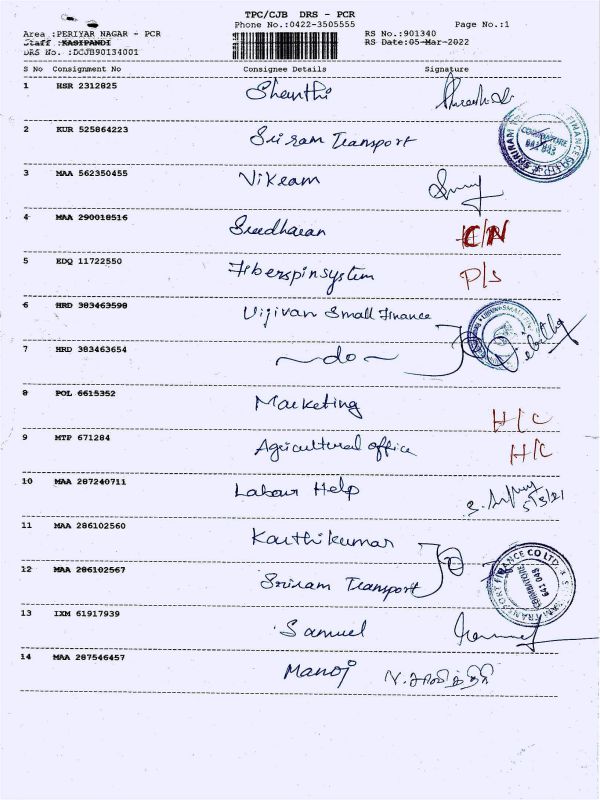 TPC/CJB DRS - PCR
Phone No.:0422-3505555 Page No.:1
Area :PERIYAR NAGAR - PCR RS No.:901340
Staff :KASIPANDI RS Date:05-Mar-2022
DRS No. :DCJB90134001
S No Consignment No Consignee Details Signature
1 HSR 2312825 Shanthi
2 KUR 525864223 Sriram Transport
3 MAA 562350455 Vikram
4 MAA 290018516 Sreedharan
5 EDQ 11722550 Fiberspinsystem P/S
6 HRD 383463598 Ujjivan Small Finance
7 HRD 383463654 ~do~
8 POL 6615352 Marketing H/C
9 MTP 671284 Agricultural office H/C
10 MAA 287240711 Labour Help 5/3/21
11 MAA 286102560 Karthikumar
12 MAA 286102567 Sriram Transport
13 IXM 61917939 Samuel
14 MAA 287546457 Manoj